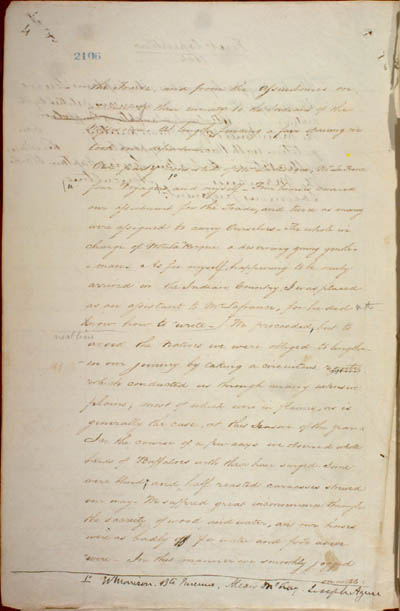 4
2106
the trade, and from the Assiniboines on
of their enmity to the Indians of the
At length, finding a fair opening we
took our departure.
four Voyageurs and myself - The horses carried
our assortment for the Trade, and twice as many
were assigned to carry Ourselves - The whole in
charge of Mr La Roque a deserving young gentle-
-man. As for myself, happening to be newly
arrived in the Indian Country, I was placed
as an assistant to Mr Lafrance, for he did not
know how to write - We proceeded, but to
avoid the Natives we were obliged to lengthen
our journey by taking a circuitous route
which conducted us through many extensive
plains, most of which were in flames, as is
generally the case, at this Season of the year.
In the course of a few days we observed whole
herds of Buffaloes with their hair singed - Some
were blind; and half roasted carcasses strewed
our way. We suffered great inconvenience through
the scarcity of wood and water, and our horses
were as badly off for water and food as we
were. In this manner we smoothly jogged
on with
W Morrison, Bte Turenne, Alexis McKay, Joseph Azure